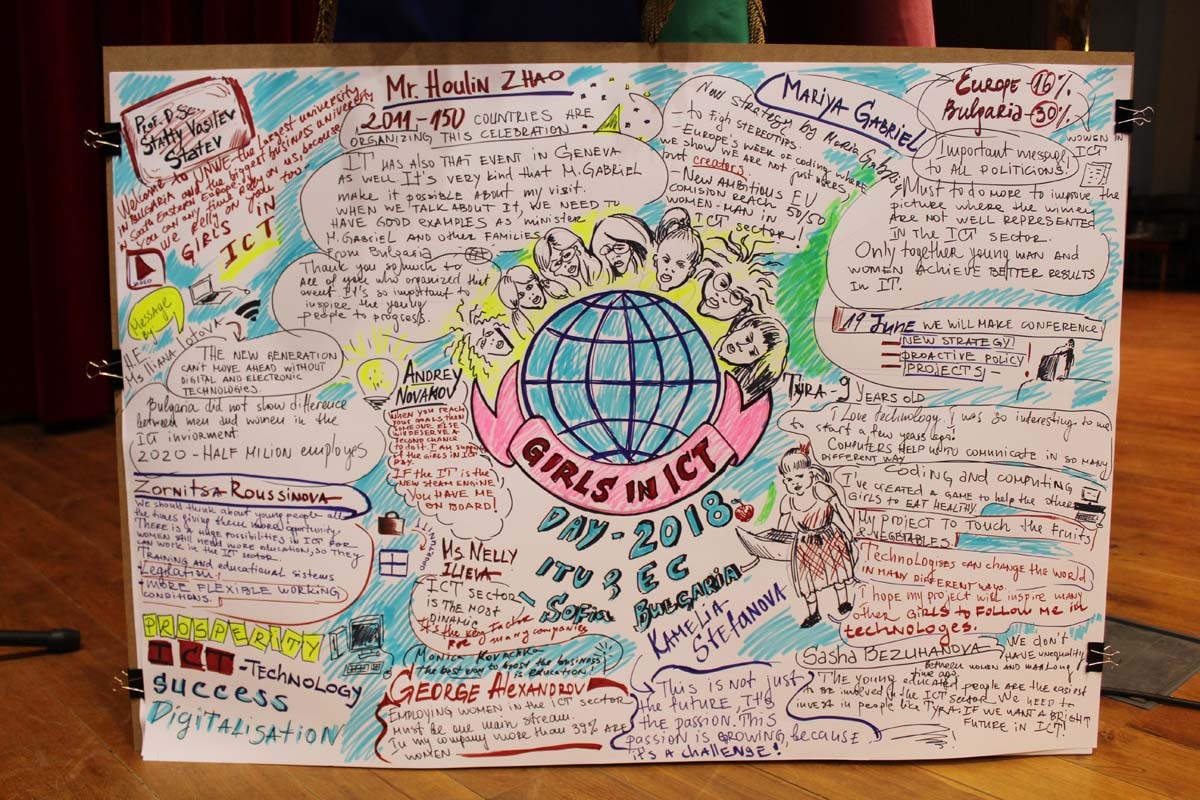 Prof. D.Sc.
Statty Vasilev
Statev
Welcome to UNWE the largest university
in Bulgaria and the biggest business university
in South Eastern Europe.
You can any time relly on us, because
we relly on you too
GIRLS IN
ICT
Mr. Houlin ZHAO
2011-150 COUNTRIES ARE
ORGANIZING THIS CELEBRATION
IT HAS ALSO THAT EVENT IN GENEVA
AS WELL. IT'S VERY KIND THAT M. GABRIEL
MAKE IT POSSIBLE ABOUT MY VISIT.
WHEN WE TALK ABOUT IT, WE NEED TO
HAVE GOOD EXAMPLES AS MINISTER
M. GABRIEL AND OTHER FAMILIES
FROM Bulgaria
Thank you so much to
all of you who organized that
event. It's so important to
inspire the young
people to progress.
MARIYA GABRIEL
New strategy by Maria Gabriel
- to figh STEREOTIPS.
- EUROPE'S WEEK OF CODING WHERE
WE SHOW WE ARE NOT JUST USERS,
but creators.
- New Ambitious EU
COMISION REACH 50/50
WOMEN-MAN IN
ICT
sector!
EUROPE - 16%
Bulgaria - 30%
WOMEN IN
ICT
Important message
TO ALL POLITICIONS!
Must to do more to improve the
picture where the wimen
ARE NOT WELL REPRESENTED
IN THE ICT SECTOR.
Only together young man and
women ACHIEVE BETTER RESULTS
In IT.
19 June WE WILL MAKE CONFERENCE
NEW STRATEGY
PROACTIVE POLICY
PROJECTS
MESSAGE
BY
H.E.
Ms Iliana Iotova
THE NEW GENERATION
CAN'T MOVE AHEAD WITHOUT
DIGITAL AND ELECTRONIC
TECHNOLOGIES.
Bulgaria did not show difference
between men and women in the
ICT inviorment
2020 - HALF MILION employes
ANDREY
NOVAKOV
WHEN YOU REACH
YOUR GOALS, THEN
SOMEONE ELSE
WILL DESERVE A
SECOND CHANCE
to do it. I am support
of the GIRLS IN ICT
DAY.
IF the IT is the
NEW STEAM ENGINE,
YOU HAVE ME
ON BOARD!
GIRLS IN ICT
DAY - 2018
ITU & EC
- SOFIA
BULGARIA
TYRA - 9 YEARS OLD
I Love technology. I was so interesting to me
to start a few years ago!
COMPUTERS HELP US TO COMUNICATE IN SO MANY
DIFFERENT WAY
CODING AND COMPUTING
I'VE CREATED A GAME TO HELP THE OTHER
GIRLS TO EAT HEALTHY
My PROJECT TO TOUCH THE FRUITS
& VEGETABLES.
TECHNOLOGISES CAN CHANGE THE WORLD
IN MANY DIFFERENT WAYS.
I hope my project will inspire many
other GIRLS to FOLLOW ME in
technologes.
Zornitsa Roussinova
We should think about young people all
the times giving them more opportunity.
THERE IS A HUGE POSSIBILITIES IN ICT FOR
WOMEN STILL NEED MORE EDUCATION, SO THEY
CAN WORK IN THE ICT SECTOR
TRAINING AND EDUCATIONAL SISTEMS
Legislation!
- MORE FLEXIBLE WORKING
CONDITIONS.
PROSPERITY
ICT - TECHNOLOGY
SUCCESS
Digitalisation
Ms Nelly
ILIEVA
ICT SECTOR
is THE MOST
DINAMIC
It's the key
many companies
MONICA KOVACHKA
the best way to boost the business
is EDUCATION!
GEORGE Alexandrov
EMPLOYING WOMEN IN THE ICT SECTOR
Must be our main stream.
In my company more than 39% ARE
WOMEN
KAMELIA
Stefanova
This is not just
the future, It's
the passion. This
passion is growing, because
it's a challenge!
Sasha BEZUHANOVA
WE DON'T
HAVE UNEQUALITY
BETWEEN WOMEN AND MAN LONG
time ago.
The young educated people are the easiest
to be involved in the ICT sector. We need to
invest in people like TYRA. IF WE WANT A BRIGHT
FUTURE IN ICT!